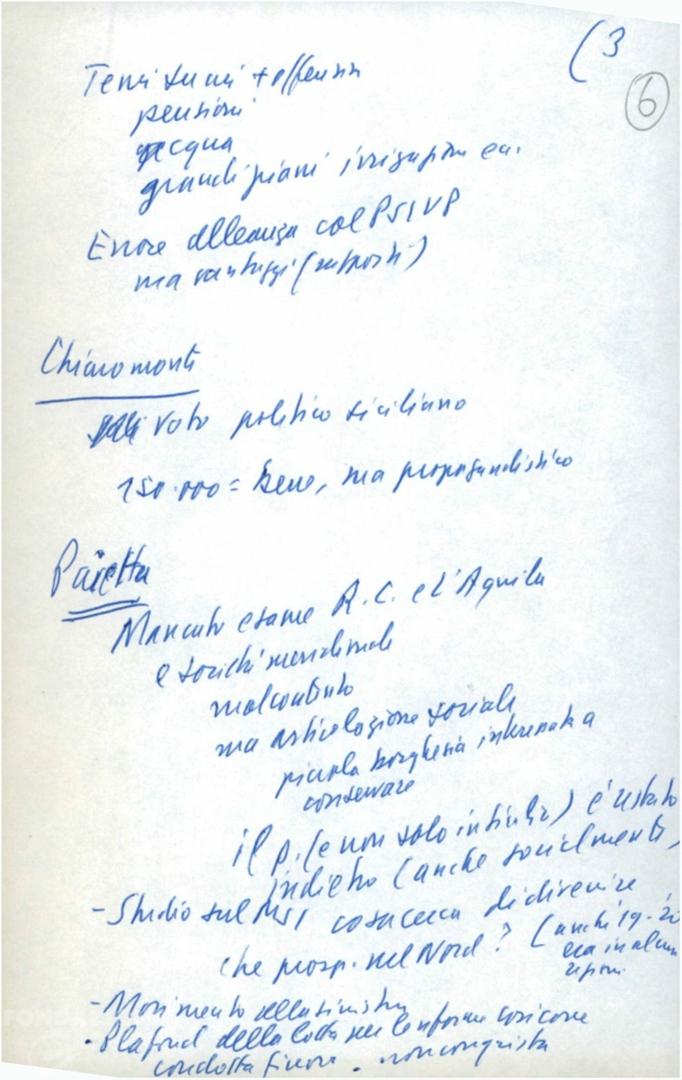 (3
6
Temi + offensivi
pensioni
acqua
grandi piani irrigazione ecc.
Errore alleanza col PSIUP
ma vantaggi (rapporti)
Chiaromonte
Voto politico siciliano
150.000 = bene, ma propagandistico
Pajetta
Mancato esame R.C. e L'Aquila
e meridionale
malcontento
ma articolazione sociale
piccola borghesia interessata a
conservare
il p. (e non solo in Sicilia) è restato
indietro (anche socialmente)
- Studio sul MSI cosa cerca di divenire
che prosp. nel Nord? (anche 19-20
era in alcune
regioni
- Movimento della sinistra
- Plafond della lotta per le riforme così come
condotta finora. non conquista